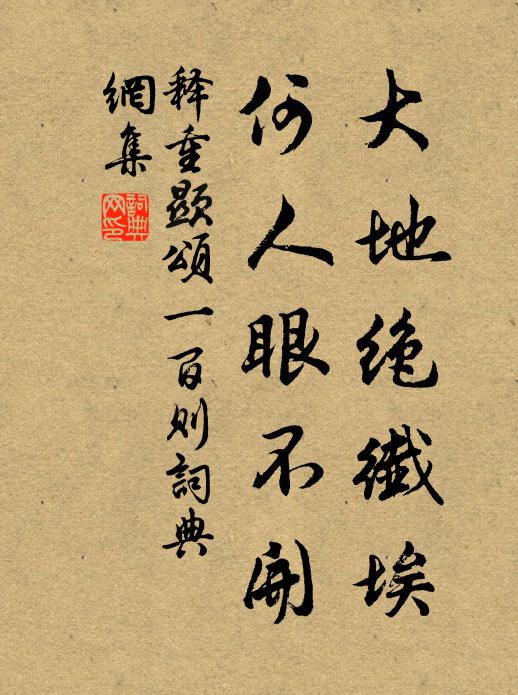 大地絶纖埃
何人眼不開
释重顯頌一百則詞典
網集
詞典网印